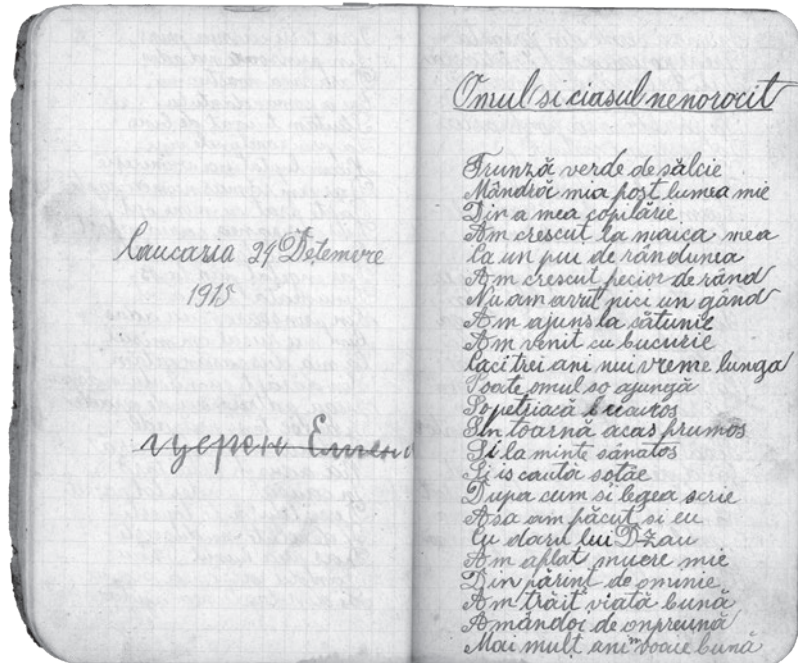 Caucazia 29 Detemvre
1915
Omul si ciasul nenorocit
Frunză verde de sălcie
Mândrăi mia post lumea mie
Din a mea copilărie
Am crescut la maica mea
Ca un pui de rândunia
Am crescut fecior de rând
Nu am avut nici un gând
Am ajuns la sătunie
Am venit cu bucurie
Caci trei ani nui vreme lunga
Poate omul so ajungă
Sopetriacă bucuros
Sîn toarnă acas frumos
Si la minte sănatos
Si is caută soțâe
Dupa cum si legea scrie
Asa am făcut si eu
Cu darul lui Dzău
Am aflat muere mie
Din părint de ominie
Am trăit viată bună
Amândoi de onpreună
Mai mult ani voaie bună